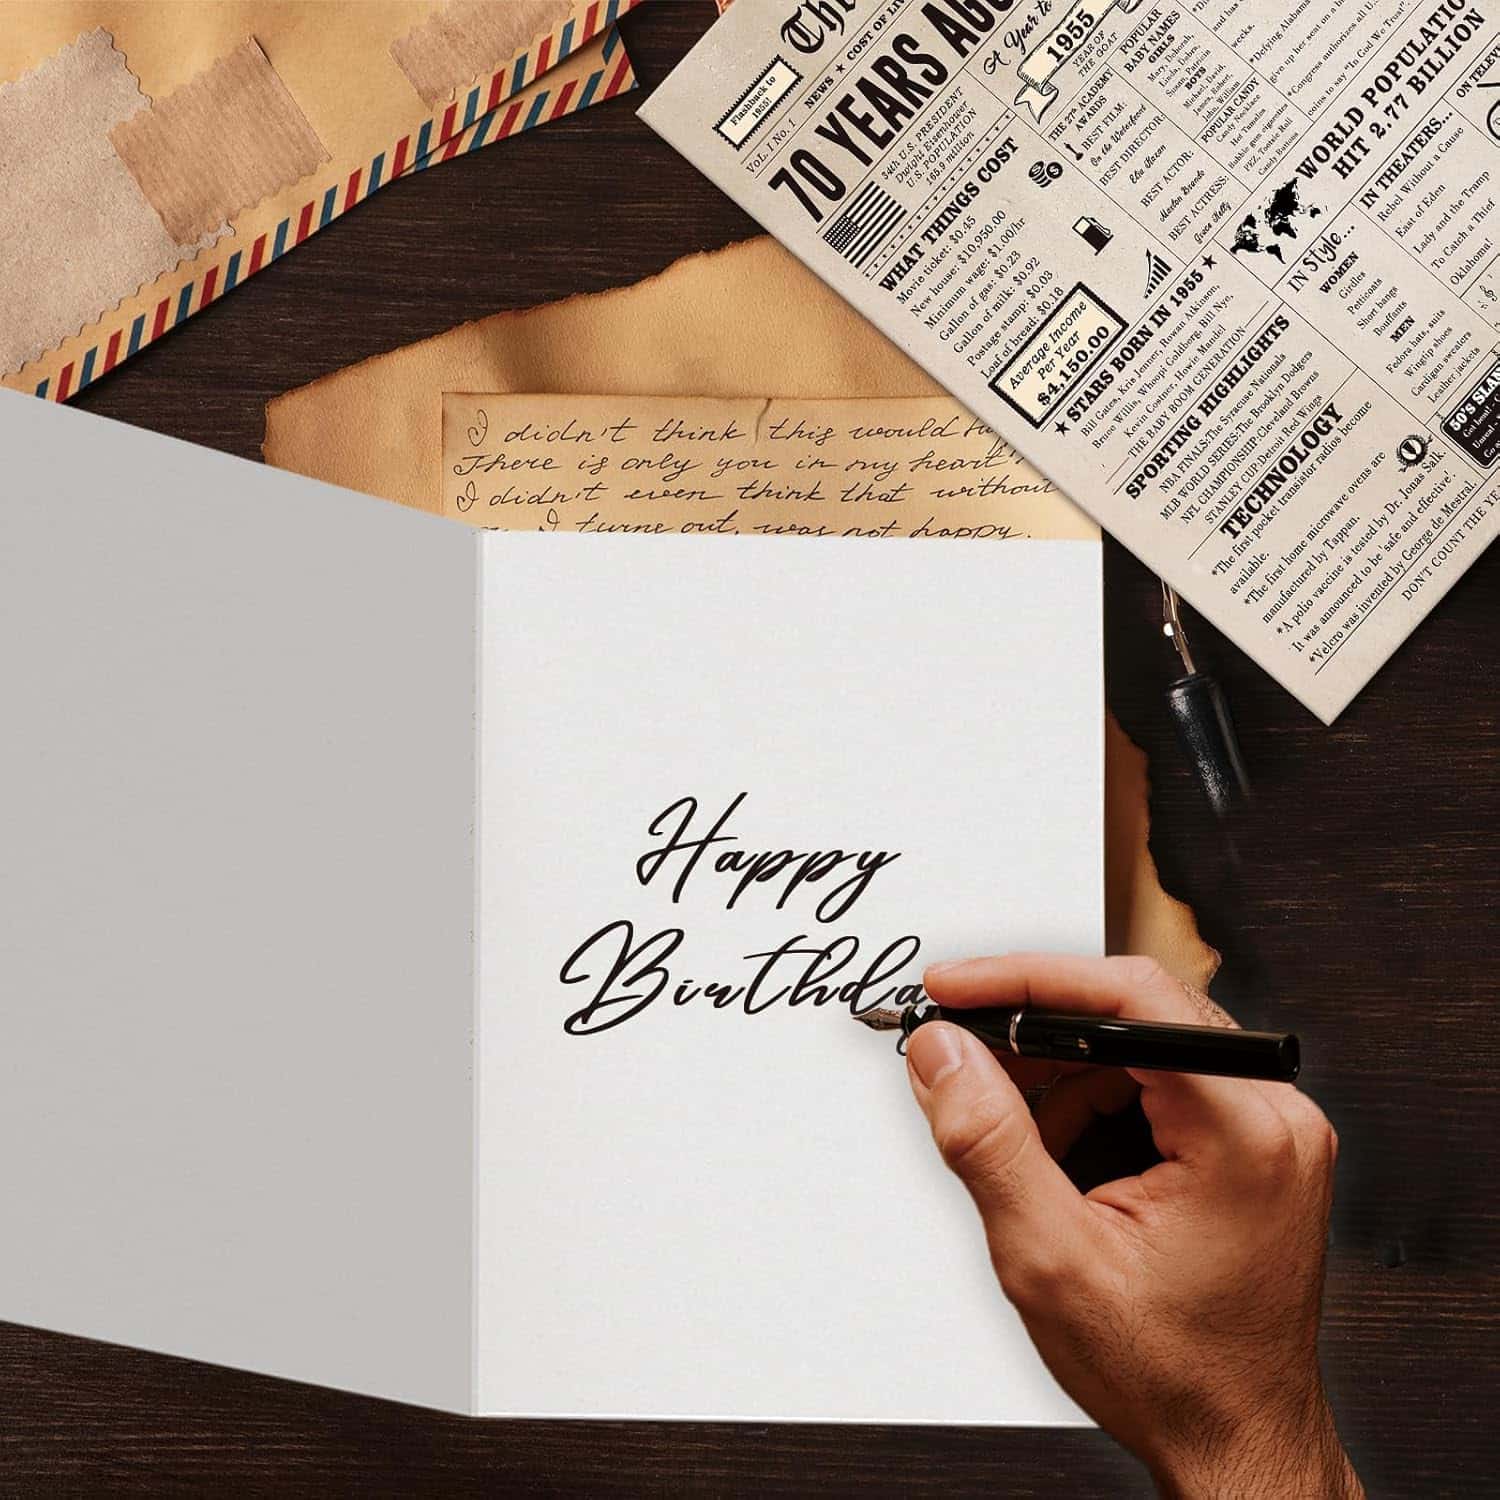 The
NEWS ★ COST OF
Flashback to
1955!
VoL. 1 No. 1
70 YEARS AGO
A Year to
1955
YEAR OF
THE GOAT
34th U.S. PRESIDENT
Dwight Eisenhower
U.S. POPULATION
165.9 million
WHAT THINGS COST
Movie ticket: $0.45
New house: $10,950.00
Minimum wage: $1.00/hr
Gallon of gas: $0.23
Gallon of milk: $0.92
Postage stamp: $0.03
Loaf of bread: $0.18
Average Income
Per Year
$4,150.00
THE 27th ACADEMY
AWARDS
BEST FILM:
On the Waterfront
BEST DIRECTOR:
Elia Kazan
BEST ACTOR:
Marlon Brando
BEST ACTRESS:
Grace Kelly
POPULAR
BABY NAMES
GIRLS
Mary, Deborah,
Linda, Debra,
Susan, Patricia
BOYS
Michael, David,
James, Robert,
John, William
POPULAR CANDY
Candy Necklace
Hot Tamales
Bubble gum cigarettes
PEZ, Tootsie Roll
Candy Buttons
weeks.
*Defying Alabama
give up her seat on a
*Congress authorizes all U.S.
coins to say "In God We Trust".
WORLD POPULATION
HIT 2.77 BILLION
★ STARS BORN IN 1955 ★
Bill Gates, Kris Jenner, Rowan Atkinson,
Bruce Willis, Whoopi Goldberg, Bill Nye,
Kevin Costner, Howie Mandel
THE BABY BOOM GENERATION
SPORTING HIGHLIGHTS
NBA FINALS:The Syracuse Nationals
MLB WORLD SERIES:The Brooklyn Dodgers
NFL CHAMPIONSHIP:Cleveland Browns
STANLEY CUP:Detroit Red Wings
TECHNOLOGY
*The first pocket transistor radios become
available.
*The first home microwave ovens are
manufactured by Tappan.
*A polio vaccine is tested by Dr. Jonas Salk.
It was announced to be 'safe and effective'.
*Velcro was invented by George de Mestral.
IN Style...
WOMEN
Girdles
Petticoats
Short bangs
Bouffants
MEN
Fedora hats, suits
Wingtip shoes
Cardigan sweaters
Leather jackets
IN THEATERS...
Rebel Without a Cause
East of Eden
Lady and the Tramp
To Catch a Thief
Oklahoma!
50'S
DON'T COUNT THE
I didn't think this would
There is only you in my heart
I didn't even think that without
I turns out, was not happy.
Happy
Birthda